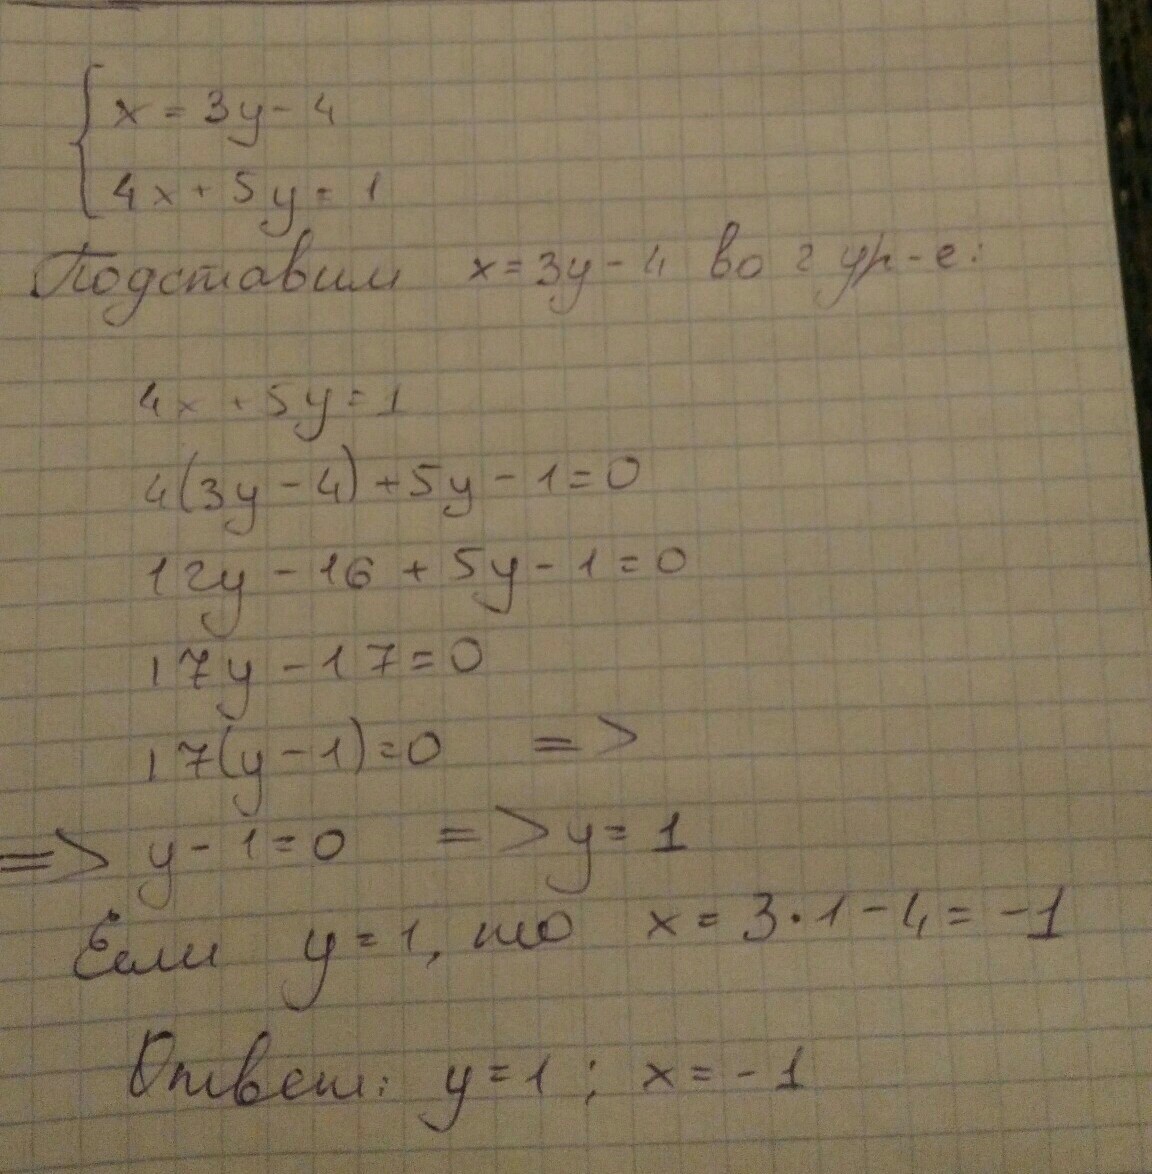 x = 3y - 4
4x + 5y = 1
Подставим x = 3y - 4 во 2 ур-е:
4x + 5y = 1
4(3y - 4) + 5y - 1 = 0
12y - 16 + 5y - 1 = 0
17y - 17 = 0
17(y - 1) = 0 =>
=> y - 1 = 0 => y = 1
Если y = 1, то x = 3 · 1 - 4 = -1
Ответ: y = 1 ; x = - 1